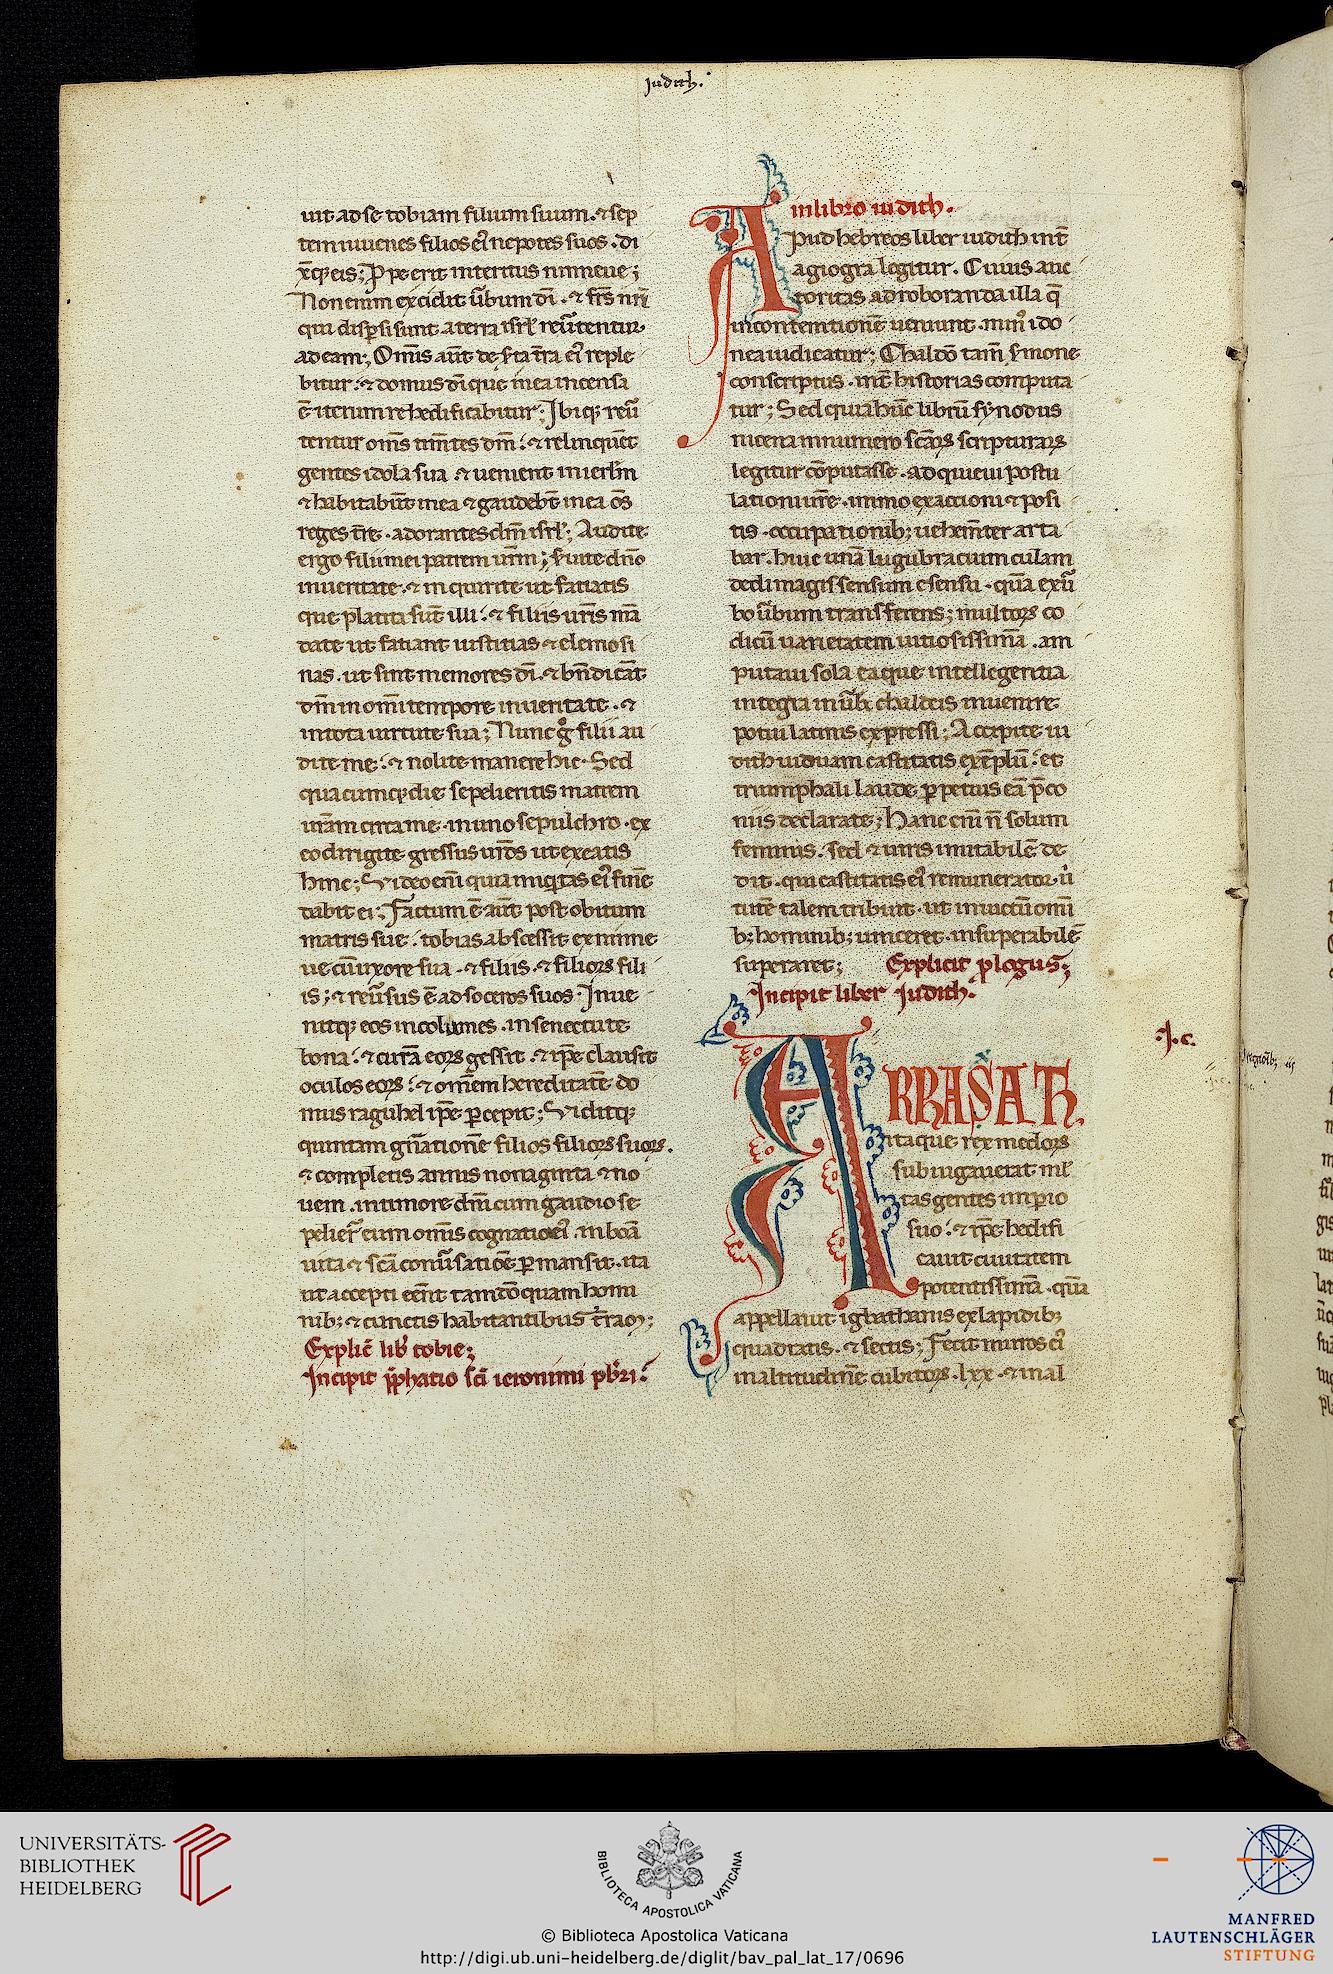 Iudith.
uit ad se tobiam filium suum. ⁊ sep
tem iuuenes filios ei᷒ nepotes suos. di
xitq; eis; P̱pe erit interitus niniue;
Non enim excidit ũbum dı̄. ⁊ fr̄s nr̄i
qui disp̱si sunt a terra isrl̄ reũtentur
ad eam; Om̄is aūt desertа t̄ra ei᷒ reple
bitur. ⁊ domus dı̄ que in ea incensa
ē iterum rehedificabitur; Ibiq; reũ
tentur om̄s tim̄tes dm̄. ⁊ relinquent
gentes idola sua. ⁊ uenient in ierl̄m
⁊ habitabūt in ea ⁊ gaudebt̄ in ea om̄s
reges t̄re. adorantes dm̄ isrl̄; Audite
ergo filii mei patrem ur̄m; s̄uite dn̄o
in ueritate. ⁊ inquirite ut fatiatis
que placita sūt illi. ⁊ filiis ur̄is mā
date ut fatiant iustitias ⁊ elemosi
nas. ut sint memores dı̄. ⁊ bn̄dicāt
dm̄ in om̄i tempore in ueritate. ⁊
in tota uirtute sua; Nunc g̊ filii au
dite me. ⁊ nolite manere hic. Sed
quacumq; die sepelieritis matrem
ur̄am circa me. in uno sepulchro. ex
eo dirigite gressus ur̄os ut exeatis
hinc; Video eni quia iniq̇tas ei᷒ finē
dabit ei; Factum ē aūt post obitum
matris sue. tobias abscessit ex niniue
ue cū uxore sua. ⁊ filiis. ⁊ filioꝝ fili
is; ⁊ reũsus ē ad soceros suos. Inue
nitq; eos incolumes. in senectute
bona. ⁊ curā eoꝝ gessit. ⁊ ip̄e clausit
oculos eoꝝ. ⁊ om̄em hereditatē do
mus raguhel ip̄e ꝑcepit; Viditq;
quintam gn̄ationē filios filioꝝ suoꝝ.
⁊ completis annis nonaginta ⁊ no
uem. in timore dm̄ cum gaudio se
pelier̄ eum om̄is cognatio ei᷒. in bona
uita ⁊ sc̄a conũsatiōe ꝑmansit. ita
ut accepti eent̄ tam dō quam homi
nib; ⁊ cunctis habitantibus t̄ram;
Explic̄ lib᷒ tobie;
Incipit p̄phatio sc̄i ieronimi pb̄ri.
in libro iudith.
APud hebreos liber iudith int̄
agiogra legitur. Cuius auc
toritas ad roboranda illa q̄
in contentionē ueniunt. min᷒ ido
nea iudicatur; Chaldō tam̄ s̄mone
conscriptus. int̄ historias computa
tur; Sed quia hūc librū synodus
nicena in numero sc̄aꝝ scripturaꝝ
legitur cōputasse. adquieui postu
lationi ur̄e. immo exactioni ⁊ posi
tis. occupationib; uehem̄ter arta
bar. huic unā lugubraciumculam
dedi magis sensum e sensu. quā ex ũ
bo ũbum transferens; multoꝝ co
dicū uarietatem uitiosissimā. am
putaui sola ea que intellegentia
integra in ũb᷒ chaldeis inuenire
potui latinis expressi; Accipite iu
dith uiduam castitatis exēplū. et
triumphali laude. ꝑpetuis eā p̄co
niis declarate; Hanc eni n̄ solum
feminis. sed ⁊ uiris imitabilē de
dit. qui castitatis ei᷒ remunerator. ũ
tutē talem tribuit. ut inuictū om̄i
b; hominib; uinceret. insuperabilē
superaret; Explicit p̱logus;
Incipit liber Iudith.
.I. c.
ARRAFAXATH
itaque rex medoꝝ
subiugauerat ml̄
tas gentes imp̱io
suo. ⁊ ip̄e hedifi
cauit ciuitatem
potentissimā. quā
appellauit igbathanis ex lapidib;
quadratis. ⁊ sectis; Fecit muros ei᷒
in altitudinē cubitoꝝ. lxx. ⁊ in al
UNIVERSITÄTS-
BIBLIOTHEK
HEIDELBERG
BIBLIOTECA APOSTOLICA VATICANA
© Biblioteca Apostolica Vaticana
http://digi.ub.uni-heidelberg.de/diglit/bav_pal_lat_17/0696
MANFRED
LAUTENSCHLÄGER
STIFTUNG